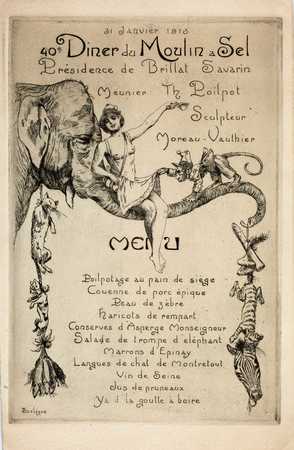 31 Janvier 1913
40e Diner du Moulin à Sel
Présidence de Brillat Savarin
Meunier Th Poilpot
Sculpteur
Moreau-Vauthier
MENU
Poilpotage au pain de siège
Couenne de porc épique
Peau de zèbre
Haricots de rempart
Conserves d'Asperge Monseigneur
Salade de trompe d'eléphant
Marrons d'Epinay
Langues de chat de Montretout
Vin de Seine
Jus de pruneaux
Ya d' la goutte à boire